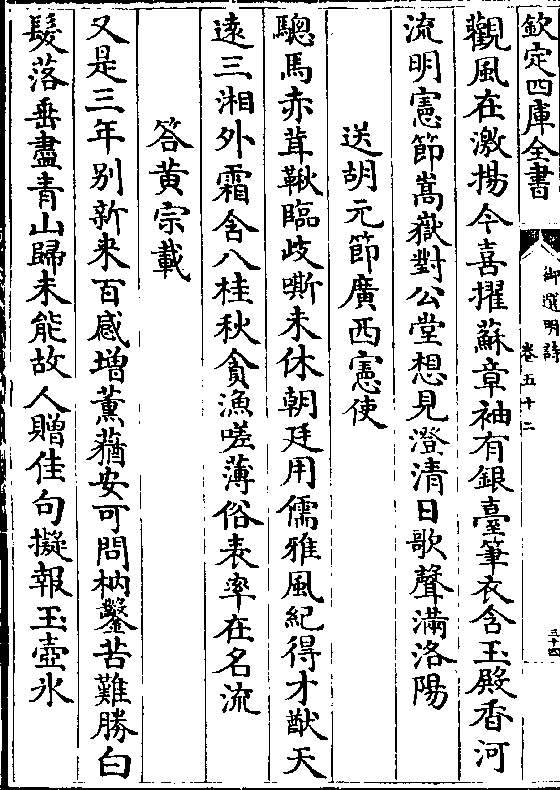 欽定四庫全書
御選明詩
卷五十二
三十四
觀風在激揚今喜擢蘇章袖有銀臺筆衣含玉殿香河
流明憲節嵩嶽對公堂想見澄清日歌聲滿洛陽
送胡元節廣西憲使
驄馬赤茸鞦臨歧嘶未休朝廷用儒雅風紀得才猷天
遠三湘外霜含八桂秋貪漁嗟薄俗表率在名流
答黃宗載
又是三年别新来百感增薰蕕安可問枘鑿苦難勝白
髮落垂盡青山歸未能故人贈佳句擬報玉壺氷